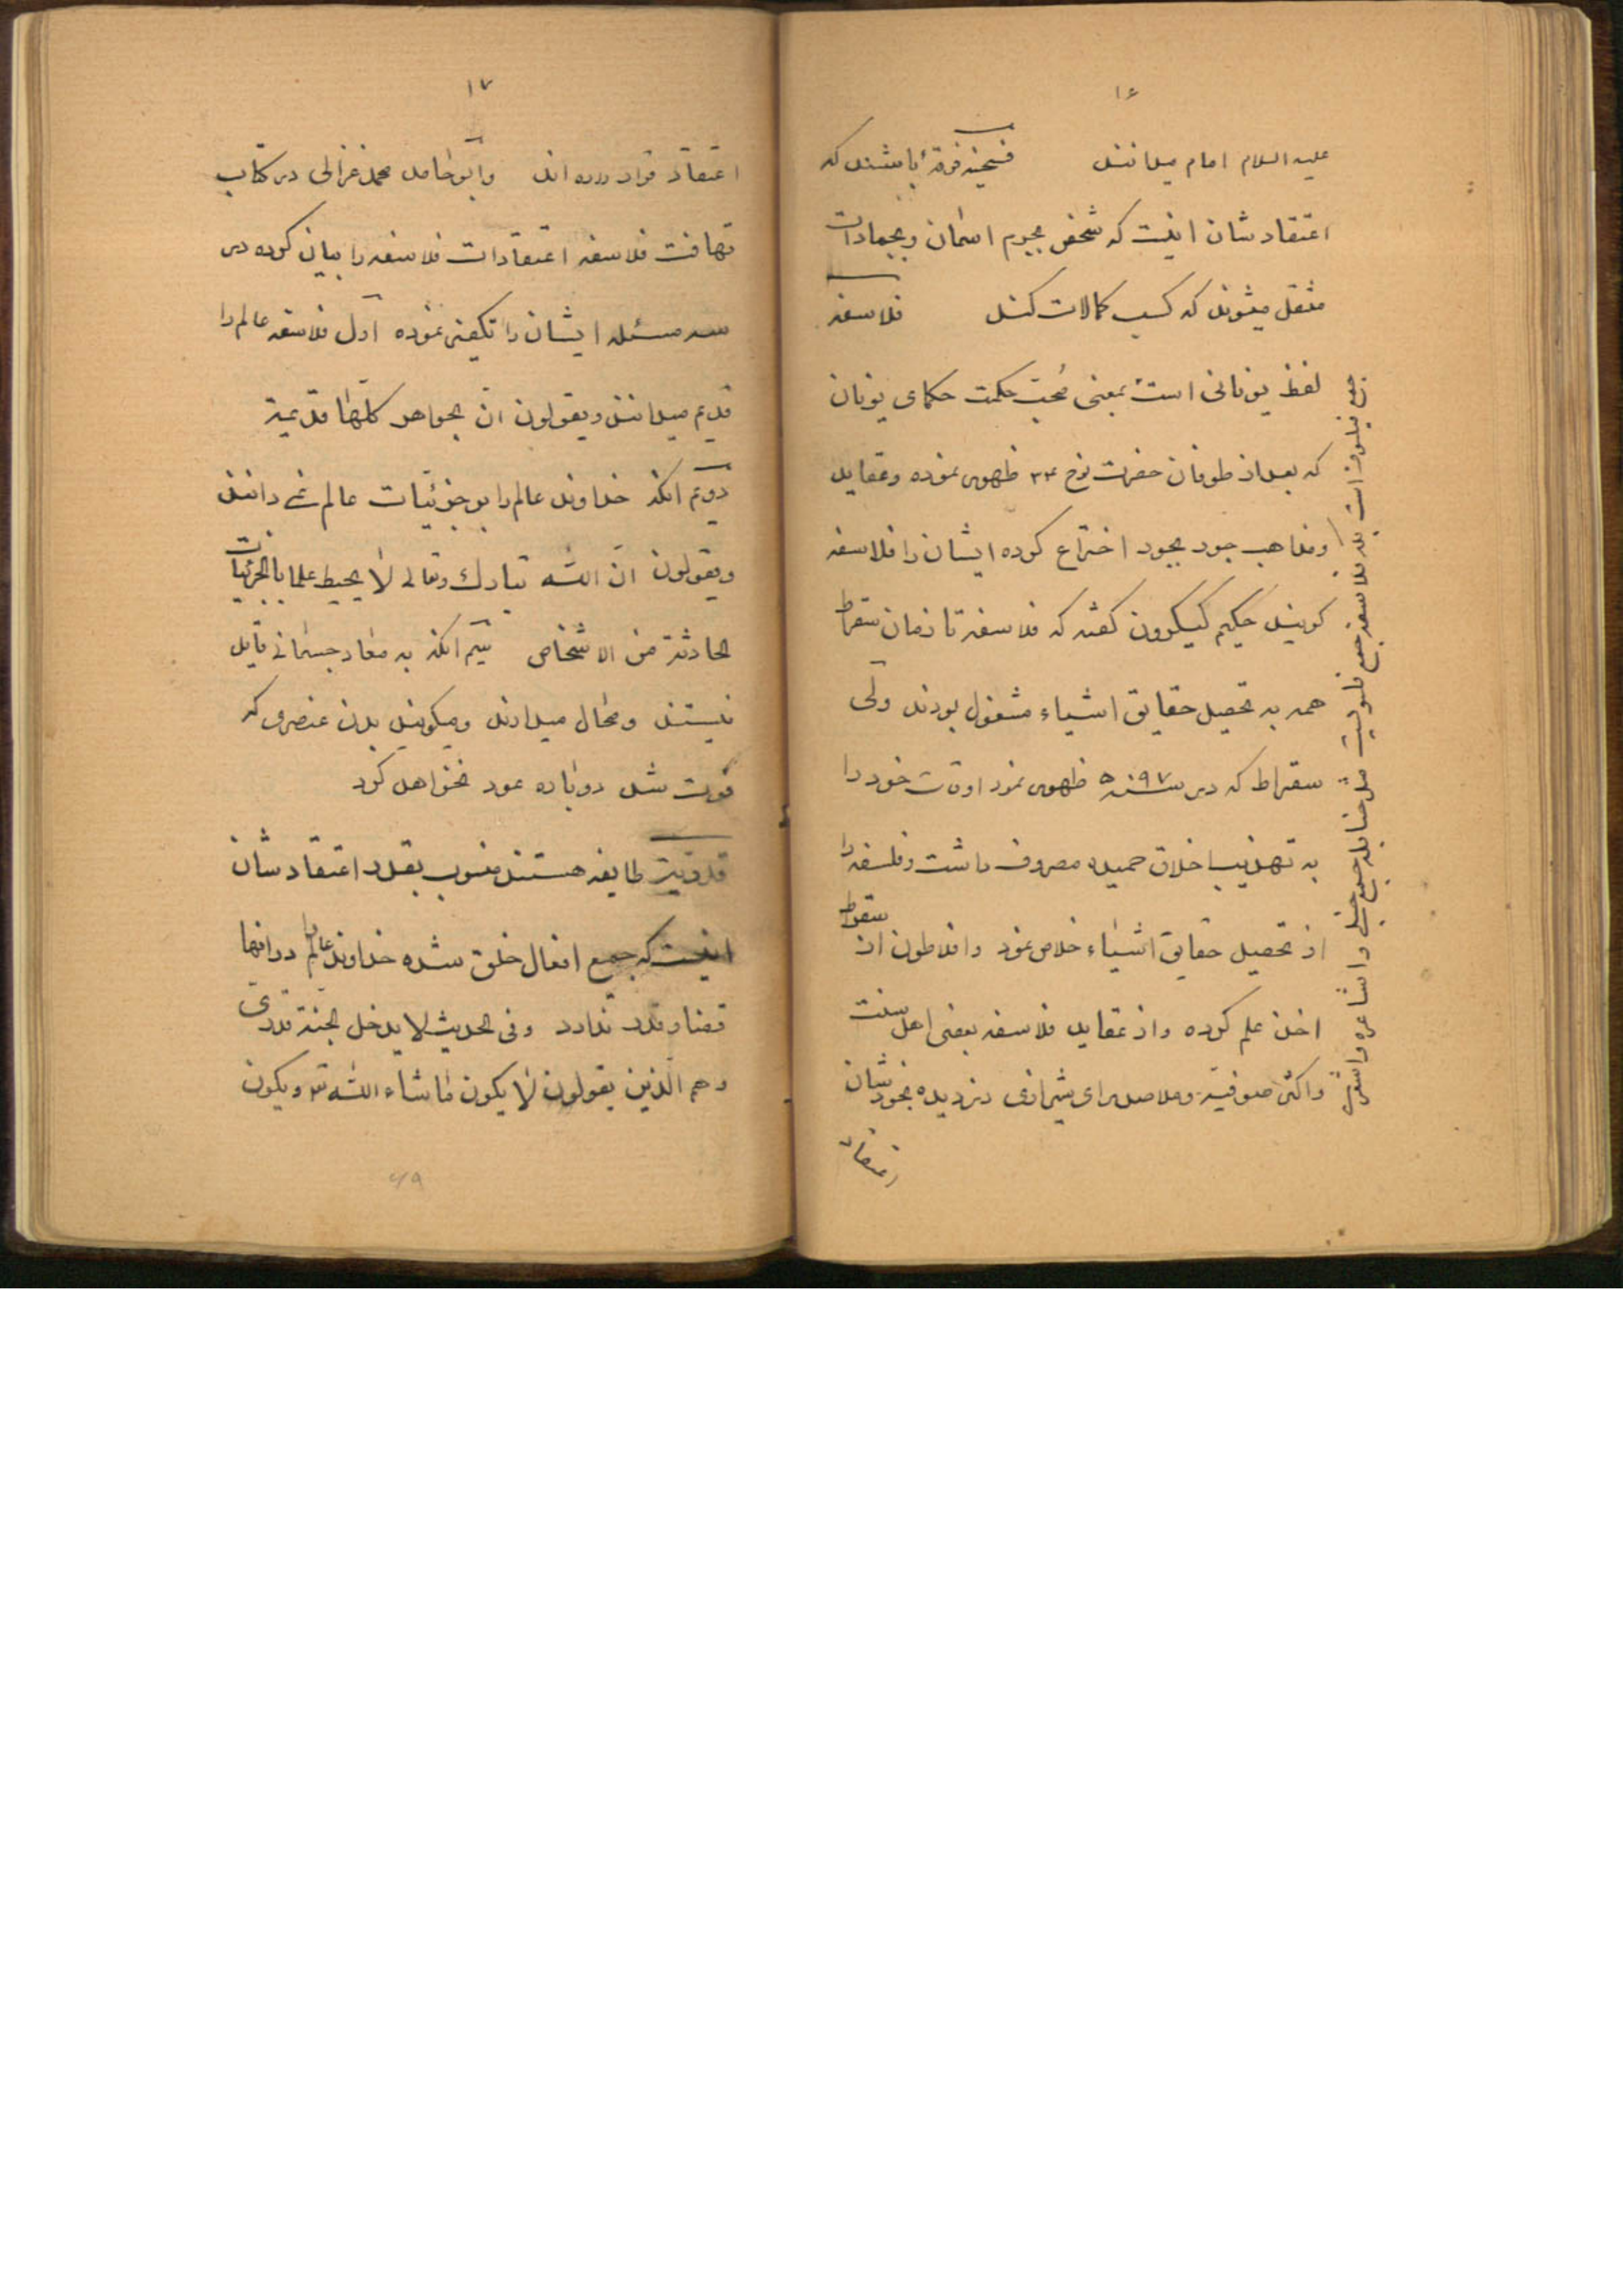 ۱۶
علیه السلام امام میدانند فسخیه فرقهٔ باشند که
اعتقادشان اینست که شخص بجرم اسمان و بجمادات
منتقل میشوند که کسب کمالات کنند فلاسفه
لفظ یونانی است بمعنی محب حکمت حکمای یونان
که بعد از طوفان حضرت نوح ظهور نموده و عقاید
و مذاهب خود بخود اختراع کرده ایشان را فلاسفه
کویند حکیم کیکرون کفته که فلاسفه تا زمان سقراط
همه به تحصیل حقایق اشیاء مشغول بودند ولی
سقراط که در سنه ظهور نمود اوقات خود را
به تهذیب اخلاق حمیده مصروف داشت و فلسفه را
از تحصیل حقایق اشیاء خلاص نمود و افلاطون از سقراط
اخذ علم کرده و از عقاید فلاسفه بعضی اهل سنت
و اکثر صوفیه و ملا صدرای شیرازی دزدیده بخودشان
اعتقاد
جمع فیلسوف است بلکه فلاسفه جمع فلسفیست مثل حنابله جمع حنبلی و اشاعره و اشعری
۱۷
اعتقاد قرار داده اند و ابو حامد محمد غزالی در کتاب
تهافت فلاسفه اعتقادات فلاسفه را بیان کرده در
سه مسئله ایشان را تکفیر نموده اول فلاسفه عالم را
قدیم میدانند و یقولون ان الجواهر کلها قدیمة
دویم آنکه خداوند عالم را بر جزئیات عالم نمی دانند
و یقولون ان الله تبارک و تعالی لا یحیط علما بالجزئیات
الحادثة من الاشخاص سیم انکه به معاد جسمانی قایل
نیستند و محال میدانند و میکویند بدن عنصری که
فوت شد دوباره عود نخواهد کرد
قدریه طایفه هستند منسوب بقدر اعتقادشان
اینست که جمیع افعال خلق شده خداوند عالم در انها
قضا و قدر ندارد و فی الحدیث لا یدخل الجنة قدری
و هم الذین یقولون لا یکون ما شاء الله و یکون